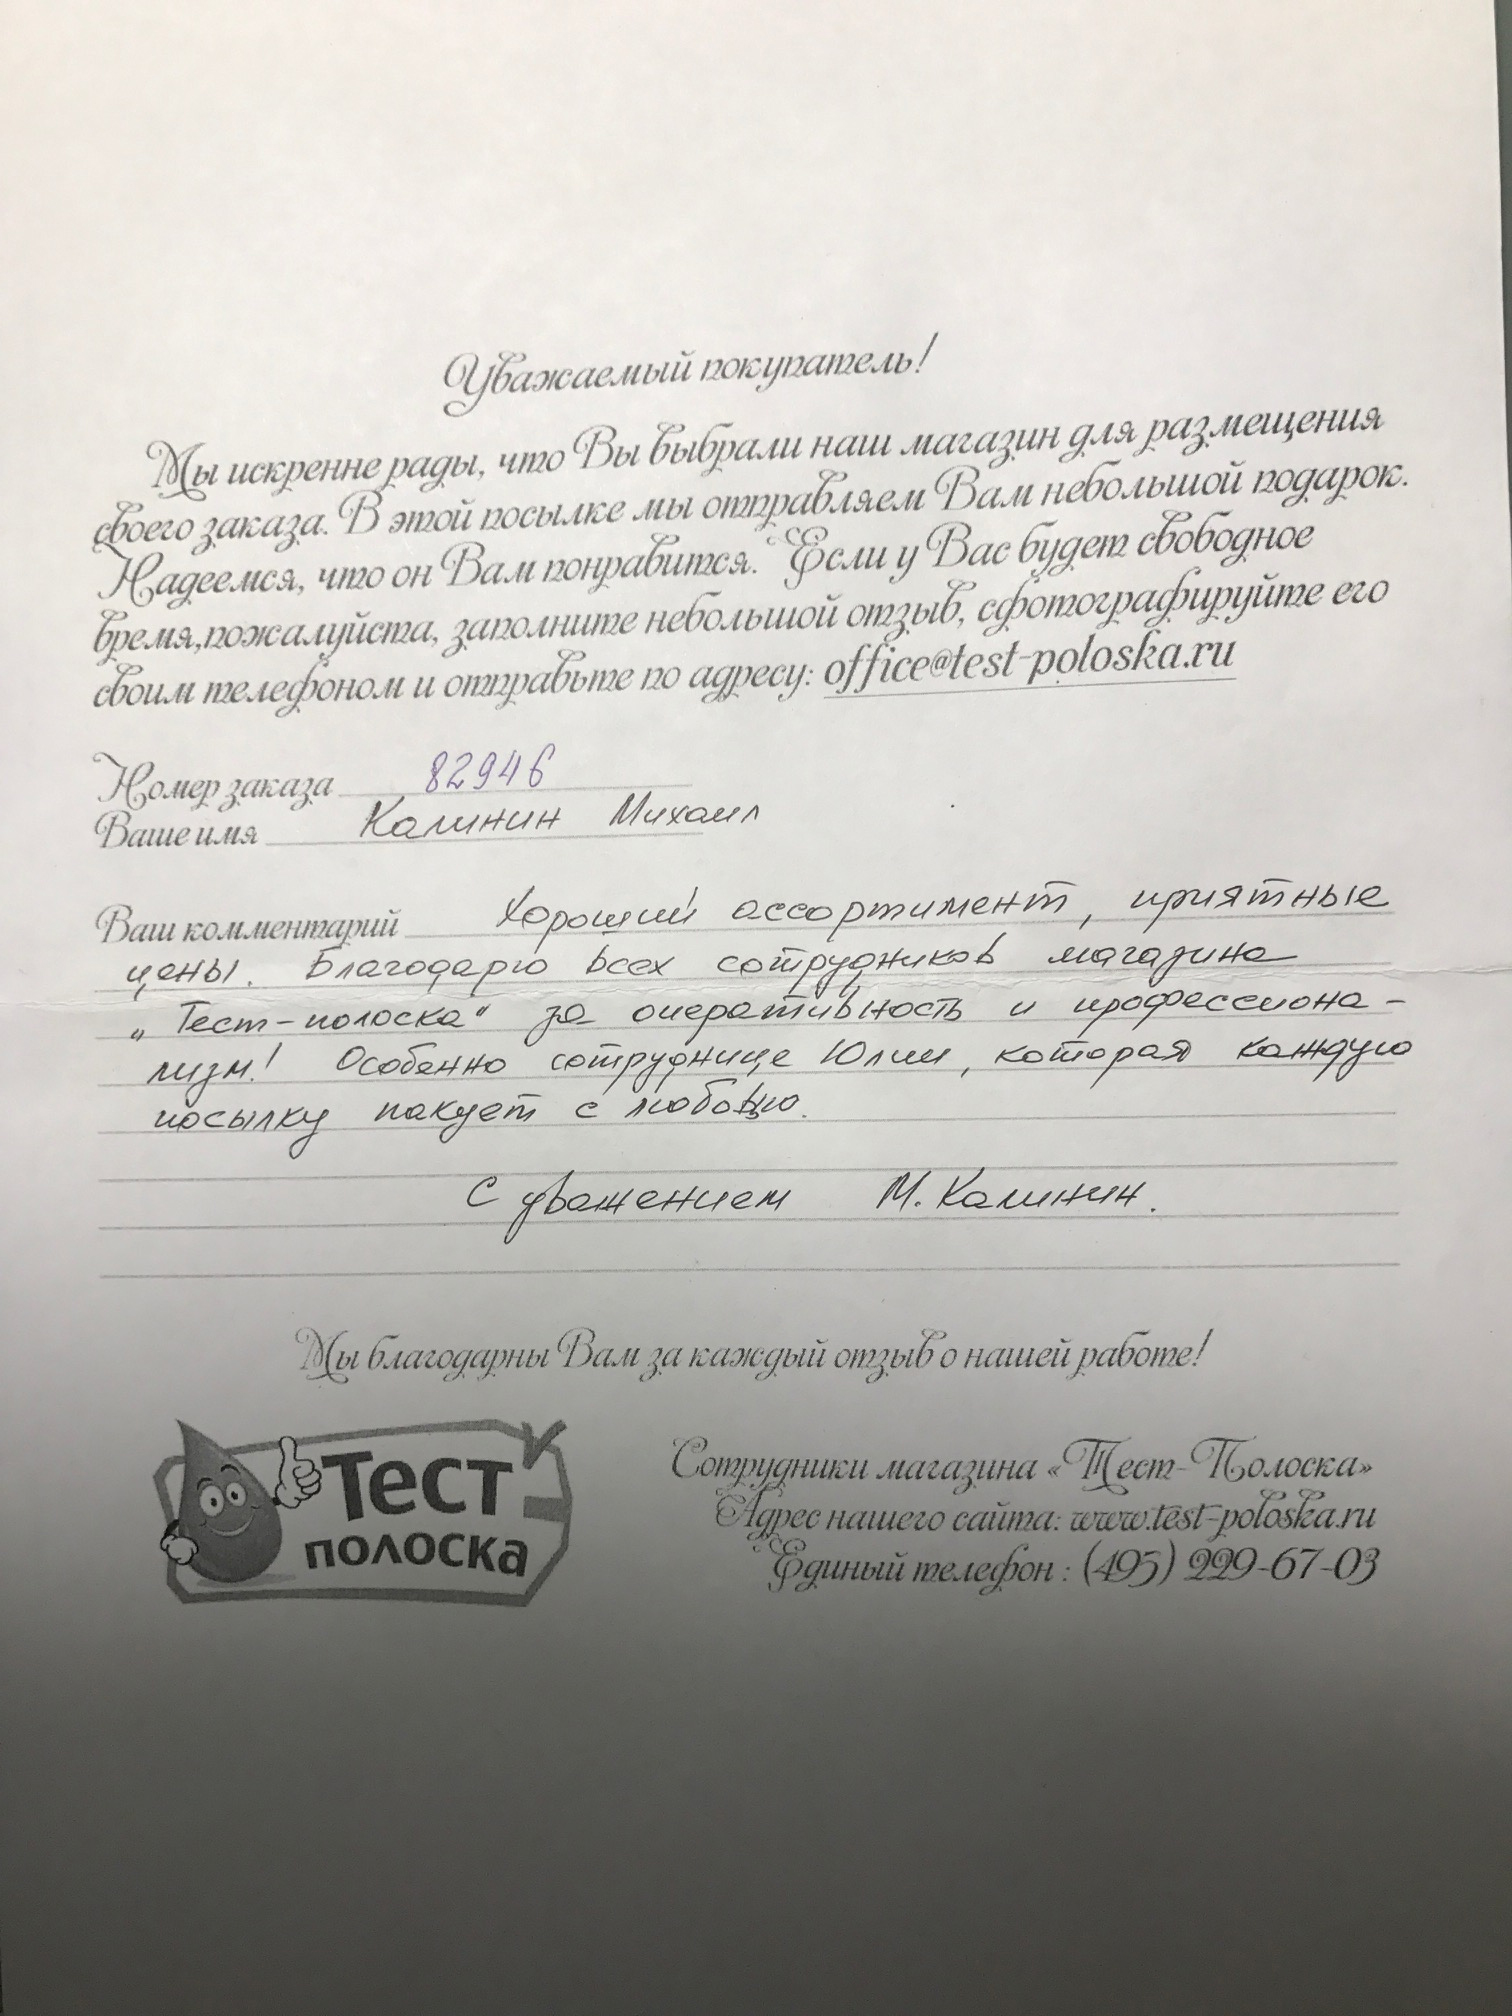 Уважаемый покупатель!
Мы искренне рады, что Вы выбрали наш магазин для размещения
своего заказа. В этой посылке мы отправляем Вам небольшой подарок.
Надеемся, что он Вам понравится. Если у Вас будет свободное
время,пожалуйста, заполните небольшой отзыв, сфотографируйте его
своим телефоном и отправьте по адресу: office@test-poloska.ru
Номер заказа 82946
Ваше имя Калинин Михаил
Ваш комментарий Хороший ассортимент, приятные
цены. Благодарю всех сотрудников магазина
„Тест-полоска“ за оперативность и профессиона-
лизм! Особенно сотруднице Юлии, которая каждую
посылку пакует с любовью.
С уважением М. Калинин.
Мы благодарны Вам за каждый отзыв о нашей работе!
Тест
полоска
Сотрудники магазина «Тест-Полоска»
Адрес нашего сайта: www.test-poloska.ru
Единый телефон : (495) 229-67-03